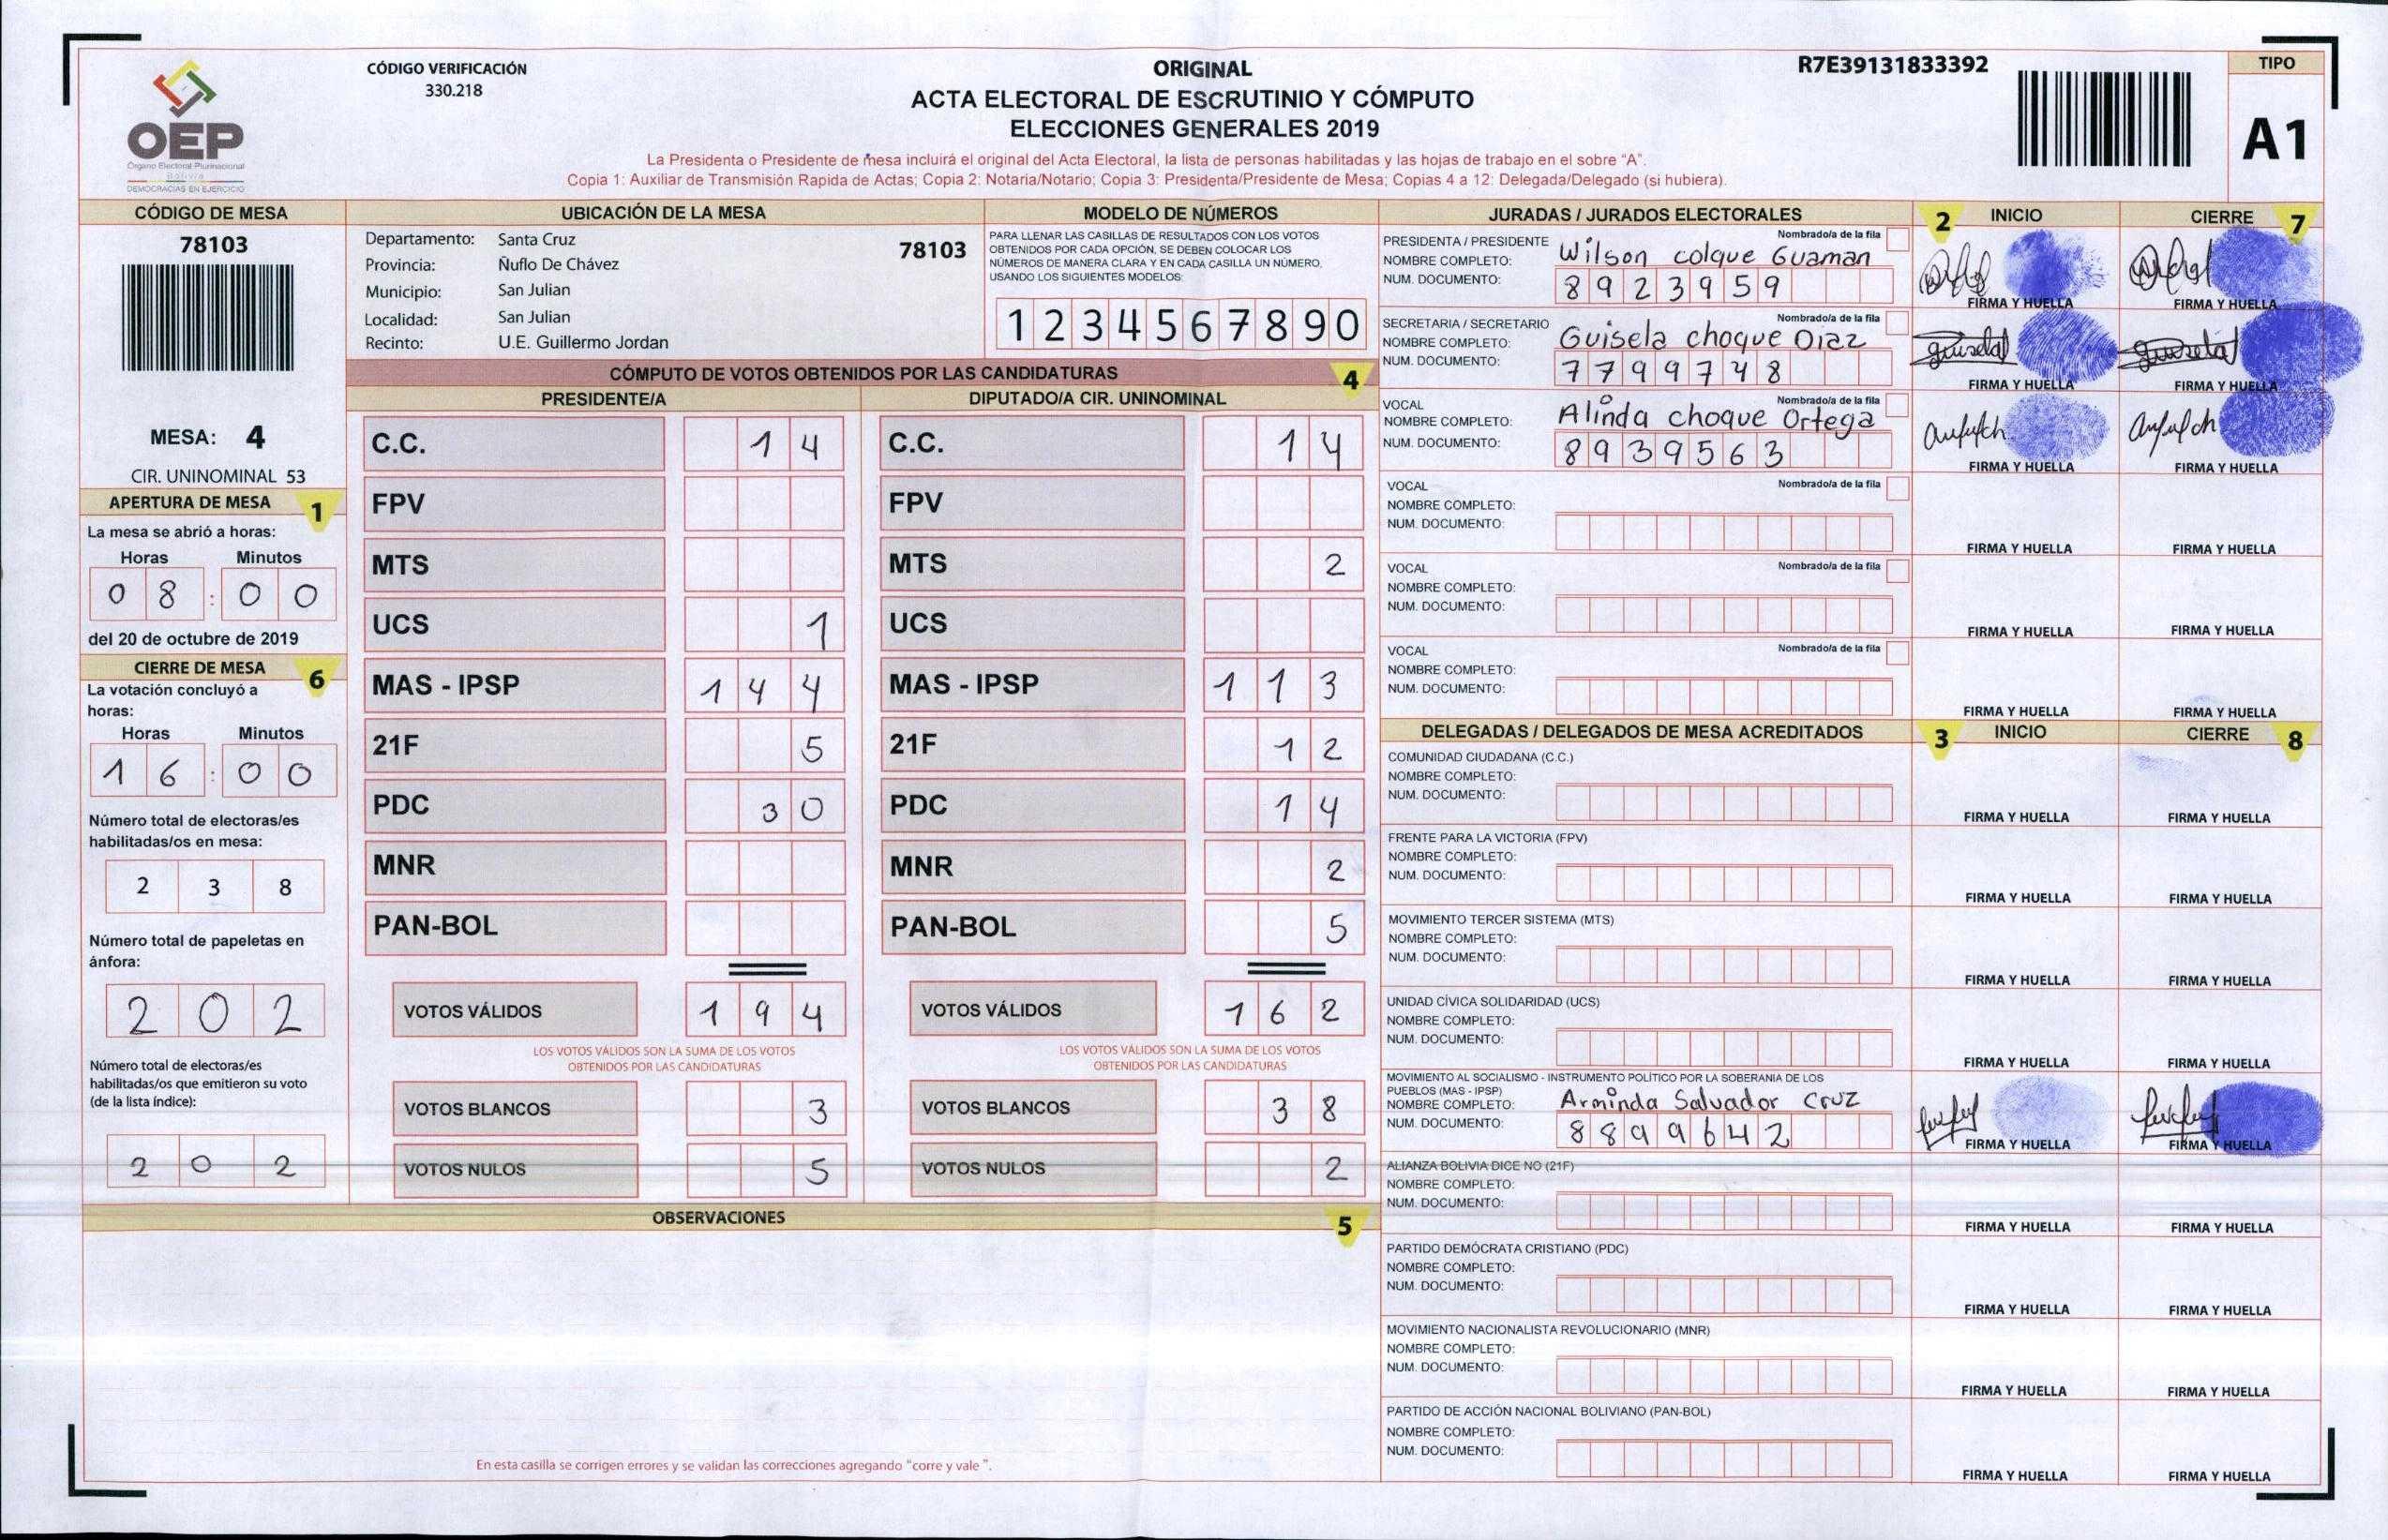 OEP
Órgano Electoral Plurinacional
Bolivia
DEMOCRACIAS EN EJERCICIO
CÓDIGO VERIFICACIÓN
330.218
ORIGINAL
ACTA ELECTORAL DE ESCRUTINIO Y CÓMPUTO
ELECCIONES GENERALES 2019
La Presidenta o Presidente de mesa incluirá el original del Acta Electoral, la lista de personas habilitadas y las hojas de trabajo en el sobre "A".
Copia 1: Auxiliar de Transmisión Rapida de Actas; Copia 2: Notaria/Notario; Copia 3: Presidenta/Presidente de Mesa; Copias 4 a 12: Delegada/Delegado (si hubiera).
R7E39131833392
TIPO
A1
CÓDIGO DE MESA
78103
MESA: 4
CIR. UNINOMINAL 53
APERTURA DE MESA 1
La mesa se abrió a horas:
Horas Minutos
08:00
del 20 de octubre de 2019
CIERRE DE MESA 6
La votación concluyó a
horas:
Horas Minutos
16:00
Número total de electoras/es
habilitadas/os en mesa:
238
Número total de papeletas en
ánfora:
202
Número total de electoras/es
habilitadas/os que emitieron su voto
(de la lista índice):
202
UBICACIÓN DE LA MESA
Departamento: Santa Cruz 78103
Provincia: Ñuflo De Chávez
Municipio: San Julian
Localidad: San Julian
Recinto: U.E. Guillermo Jordan
MODELO DE NÚMEROS
PARA LLENAR LAS CASILLAS DE RESULTADOS CON LOS VOTOS
OBTENIDOS POR CADA OPCIÓN, SE DEBEN COLOCAR LOS
NÚMEROS DE MANERA CLARA Y EN CADA CASILLA UN NÚMERO,
USANDO LOS SIGUIENTES MODELOS:
1234567890
CÓMPUTO DE VOTOS OBTENIDOS POR LAS CANDIDATURAS 4
PRESIDENTE/A DIPUTADO/A CIR. UNINOMINAL
C.C. 14 C.C. 14
FPV FPV
MTS MTS 2
UCS 1 UCS
MAS - IPSP 144 MAS - IPSP 113
21F 5 21F 12
PDC 30 PDC 14
MNR MNR 2
PAN-BOL PAN-BOL 5
VOTOS VÁLIDOS 194 VOTOS VÁLIDOS 162
LOS VOTOS VÁLIDOS SON LA SUMA DE LOS VOTOS LOS VOTOS VÁLIDOS SON LA SUMA DE LOS VOTOS
OBTENIDOS POR LAS CANDIDATURAS OBTENIDOS POR LAS CANDIDATURAS
VOTOS BLANCOS 3 VOTOS BLANCOS 38
VOTOS NULOS 5 VOTOS NULOS 2
OBSERVACIONES 5
En esta casilla se corrigen errores y se validan las correcciones agregando "corre y vale ".
JURADAS / JURADOS ELECTORALES 2 INICIO CIERRE 7
PRESIDENTA / PRESIDENTE Nombrado/a de la fila
NOMBRE COMPLETO: Wilson colque Guaman
NUM. DOCUMENTO: 8923959
FIRMA Y HUELLA FIRMA Y HUELLA
SECRETARIA / SECRETARIO Nombrado/a de la fila
NOMBRE COMPLETO: Guisela choque Diaz
NUM. DOCUMENTO: 7799748
FIRMA Y HUELLA FIRMA Y HUELLA
VOCAL Nombrado/a de la fila
NOMBRE COMPLETO: Alinda choque Ortega
NUM. DOCUMENTO: 8939563
FIRMA Y HUELLA FIRMA Y HUELLA
VOCAL Nombrado/a de la fila
NOMBRE COMPLETO:
NUM. DOCUMENTO:
FIRMA Y HUELLA FIRMA Y HUELLA
VOCAL Nombrado/a de la fila
NOMBRE COMPLETO:
NUM. DOCUMENTO:
FIRMA Y HUELLA FIRMA Y HUELLA
VOCAL Nombrado/a de la fila
NOMBRE COMPLETO:
NUM. DOCUMENTO:
FIRMA Y HUELLA FIRMA Y HUELLA
DELEGADAS / DELEGADOS DE MESA ACREDITADOS 3 INICIO CIERRE 8
COMUNIDAD CIUDADANA (C.C.)
NOMBRE COMPLETO:
NUM. DOCUMENTO:
FIRMA Y HUELLA FIRMA Y HUELLA
FRENTE PARA LA VICTORIA (FPV)
NOMBRE COMPLETO:
NUM. DOCUMENTO:
FIRMA Y HUELLA FIRMA Y HUELLA
MOVIMIENTO TERCER SISTEMA (MTS)
NOMBRE COMPLETO:
NUM. DOCUMENTO:
FIRMA Y HUELLA FIRMA Y HUELLA
UNIDAD CÍVICA SOLIDARIDAD (UCS)
NOMBRE COMPLETO:
NUM. DOCUMENTO:
FIRMA Y HUELLA FIRMA Y HUELLA
MOVIMIENTO AL SOCIALISMO - INSTRUMENTO POLÍTICO POR LA SOBERANIA DE LOS
PUEBLOS (MAS - IPSP)
NOMBRE COMPLETO: Arminda Salvador Cruz
NUM. DOCUMENTO: 8899642
FIRMA Y HUELLA FIRMA Y HUELLA
ALIANZA BOLIVIA DICE NO (21F)
NOMBRE COMPLETO:
NUM. DOCUMENTO:
FIRMA Y HUELLA FIRMA Y HUELLA
PARTIDO DEMÓCRATA CRISTIANO (PDC)
NOMBRE COMPLETO:
NUM. DOCUMENTO:
FIRMA Y HUELLA FIRMA Y HUELLA
MOVIMIENTO NACIONALISTA REVOLUCIONARIO (MNR)
NOMBRE COMPLETO:
NUM. DOCUMENTO:
FIRMA Y HUELLA FIRMA Y HUELLA
PARTIDO DE ACCIÓN NACIONAL BOLIVIANO (PAN-BOL)
NOMBRE COMPLETO:
NUM. DOCUMENTO:
FIRMA Y HUELLA FIRMA Y HUELLA